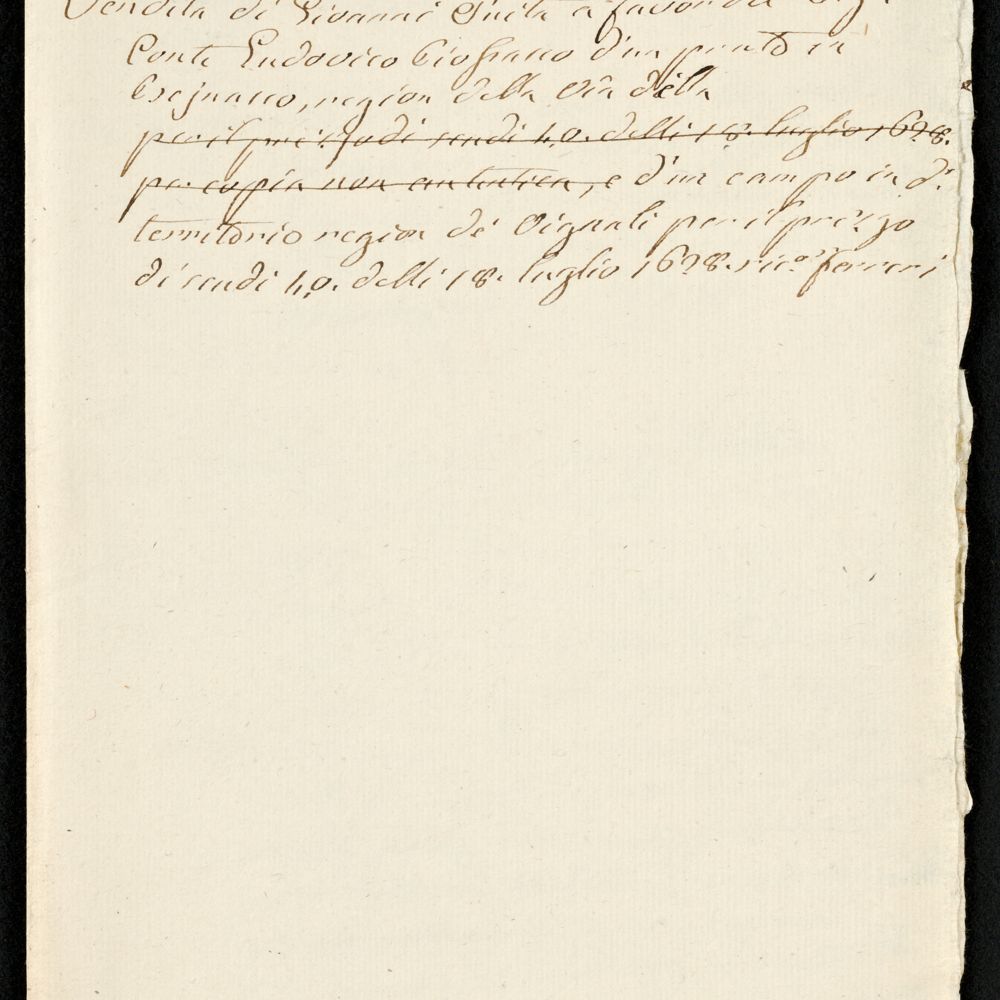 Vendita di Giovanni Guita a favor del Sig.r
Conte Ludovico d'un prato in
region della Via della
per il prezzo di scudi 40. delli 18. luglio 1698.
per copia non autentica, e d'un campo in d.o
territorio region de' Vignali per il prezzo
di scudi 40. delli 18. luglio 1698. ric.o Ferreri